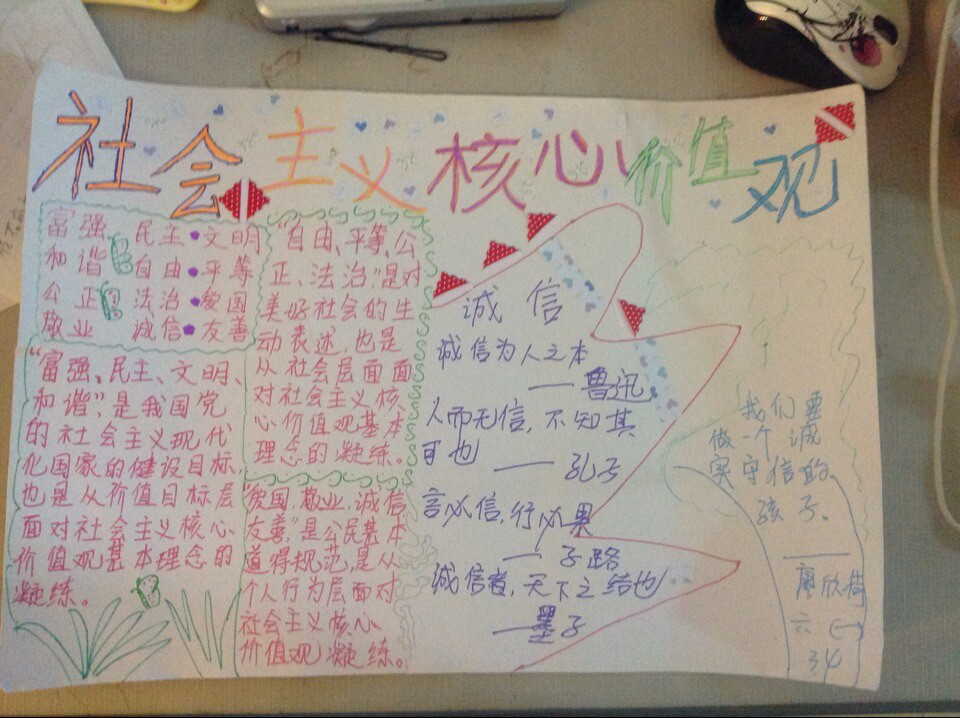 社会主义核心价值观
富强 民主·文明
和谐 自由·平等
公正 法治·爱国
敬业 诚信·友善
“富强、民主、文明、
和谐”,是我国党
的社会主义现代
化国家的健设目标,
也是从价值目标层
面对社会主义核心
价值观基本理念的
凝练。
“自由、平等、公
正、法治”是对
美好社会的生
动表述,也是
从社会层面面
对社会主义核
心价值观基本
理念的凝练。
爱国,敬业,诚信
友善”是公民基本
道得规范,是从
个人行为层面对
社会主义核心
价值观凝练。
诚信
诚信为人之本
——鲁迅
人而无信,不知其
可也
——孔子
言必信,行必果
——子路
诚信者,天下之结也
——墨子
我们要
做一个诚
实守信的
孩子。
——
廖欣
六(一)
34